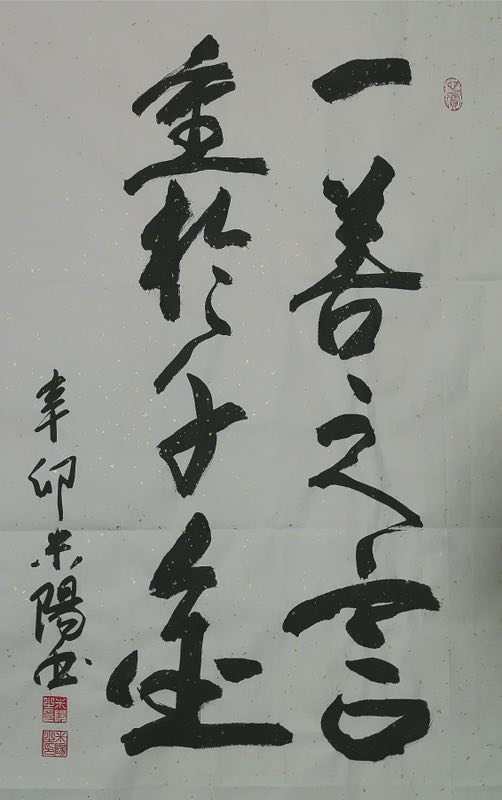 一善之言
重於千金
辛卯米陽书